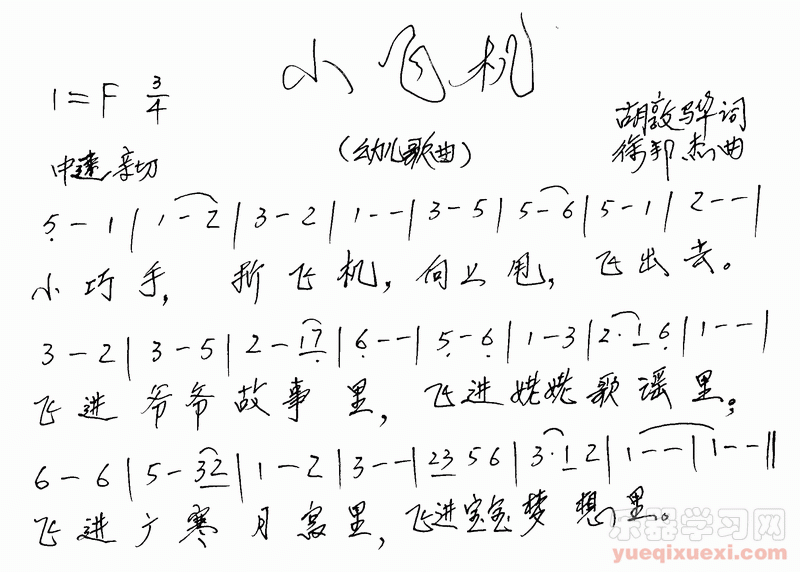 小飞机
1=F 3/4
(幼儿歌曲)
胡敦骅词
中速 亲切
徐邦杰曲
5̣ - 1 | 1 - 2 | 3 - 2 | 1 - - | 3 - 5 | 5 - 6 | 5 - 1 | 2 - - |
小巧手, 折飞机, 向上甩, 飞出去。
3 - 2 | 3 - 5 | 2 - 1 7̣ | 6̣ - - | 5̣ - 6̣ | 1 - 3 | 2 · 1 6̣ | 1 - - |
飞进爷爷故事里, 飞进姥姥歌谣里;
6 - 6 | 5 - 3 2 | 1 - 2 | 3 - - | 2 3 5 6 | 3 · 1 2 | 1 - - | 1 - - ‖
飞进广寒月宫里, 飞进宝宝梦想里。
乐器学习网
yueqixuexi.com